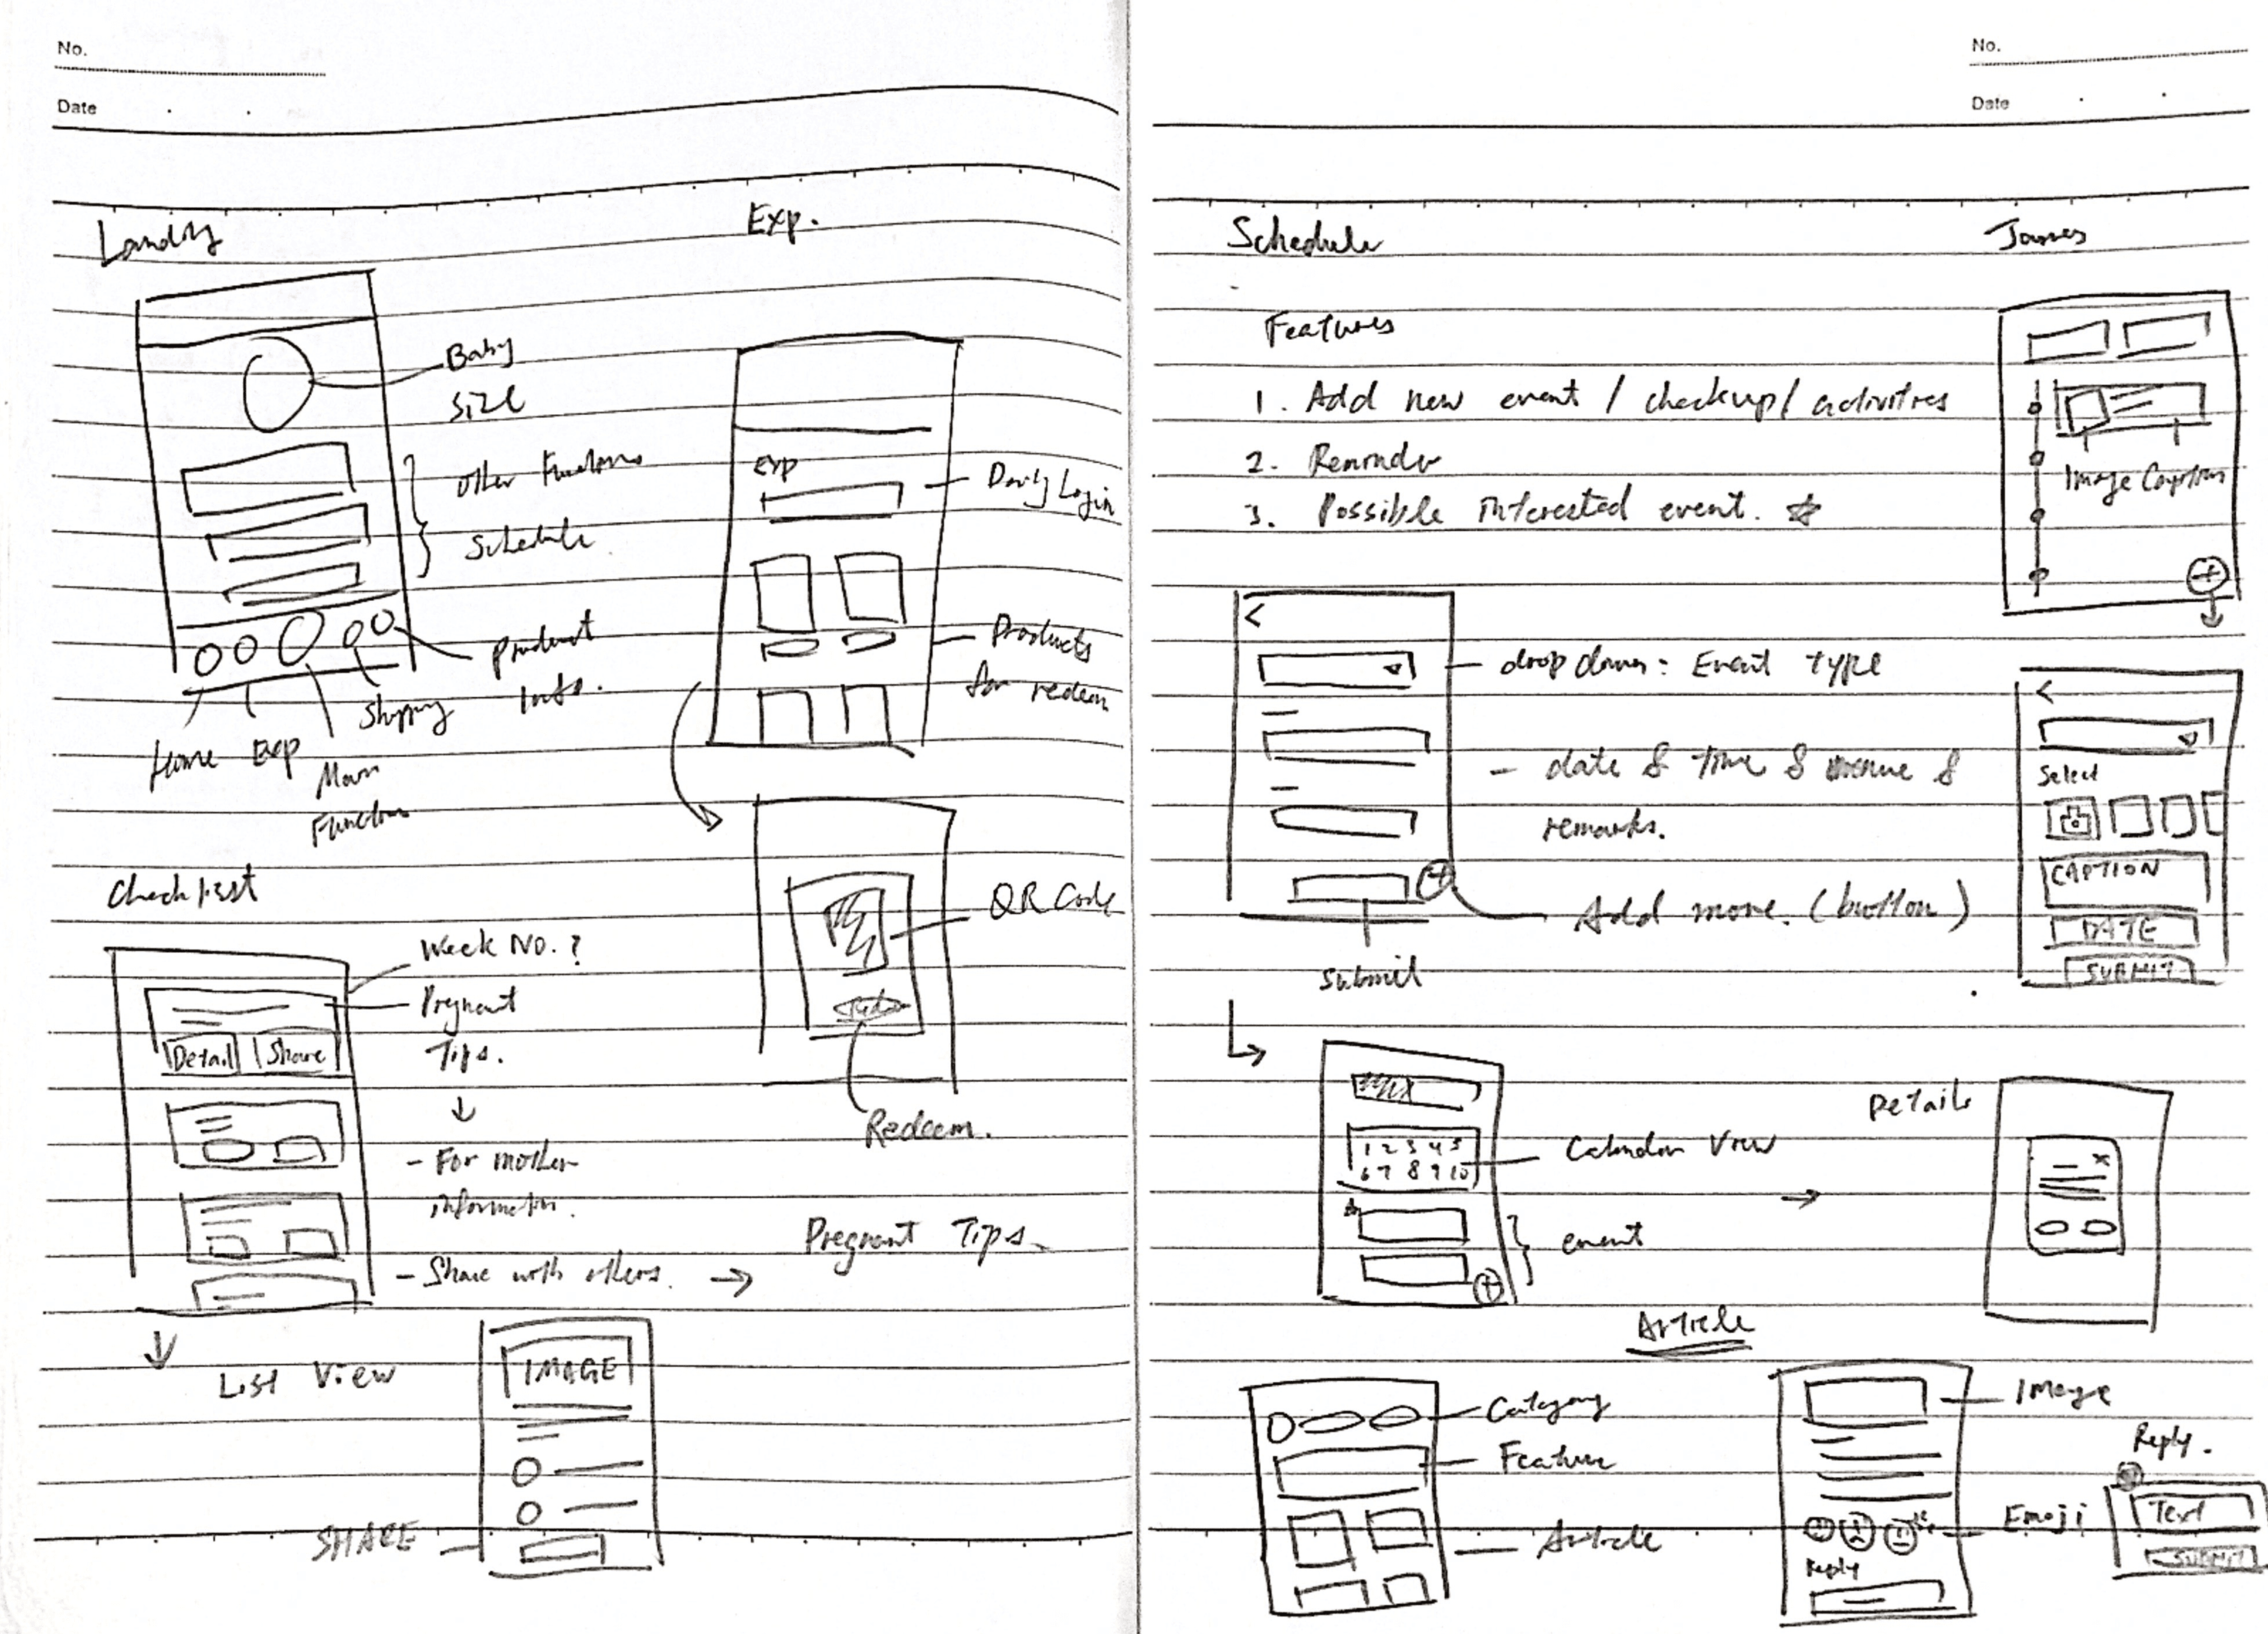 No.
Date
Landing
Baby
size
other Functions
Schedule
Product
Info.
Shopping
Home Exp
Main
Function
Exp.
Exp
Daily Login
Products
for redeem
QR Code
Redeem.
Checklist
Week No. ?
Pregnant
Tips.
Detail Share
- For mother
information.
- Share with others.
List View
Pregnant Tips
IMAGE
SHARE
No.
Date
Schedule
Features
1. Add new event / checkup / activities
2. Reminder
3. Possible interested event.
drop down: Event type
- date & time & venue &
remarks.
Add more. (button)
submit
Image Caption
Select
CAPTION
DATE
SUBMIT
1 2 3 4 5
6 7 8 9 10
Calendar View
event
Details
x
Article
Category
Feature
Article
Image
Emoji
Reply
Reply.
Text
SUBMIT